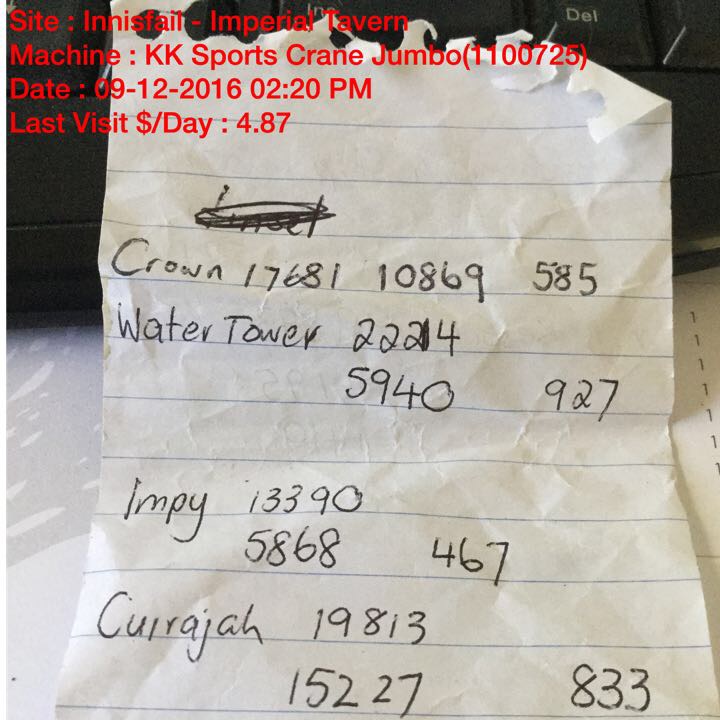 Site : Innisfail - Imperial Tavern
Machine : KK Sports Crane Jumbo(1100725)
Date : 09-12-2016 02:20 PM
Last Visit $/Day : 4.87
Ins
Del
Crown 17681 10869 585
Water Tower 22214
5940 927
Impy 13390
5868 467
Cuirajah 19813
15227 833